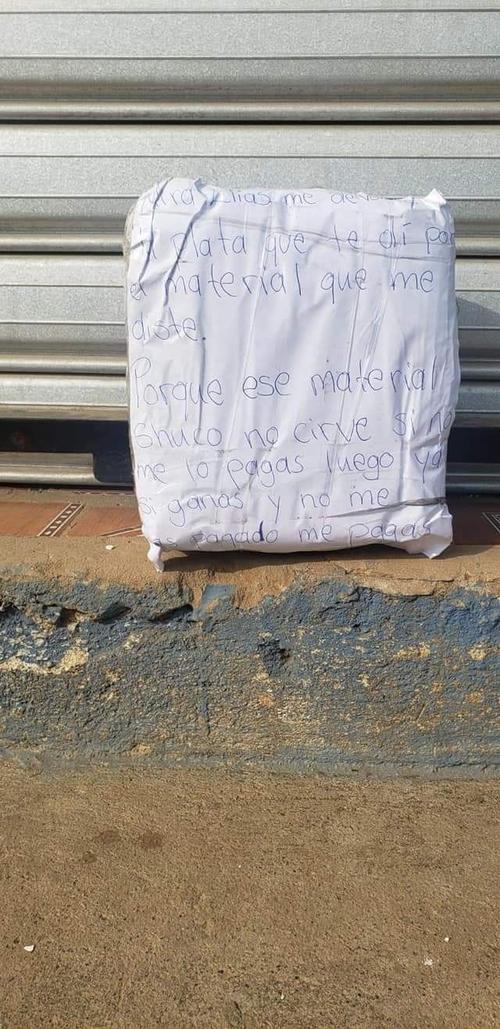 Elias me
plata que te di por
el material que me
diste.
Porque ese material
Shuco no cirve Si no
me lo pagas luego ya
si ganas y no me
pagado me pagas